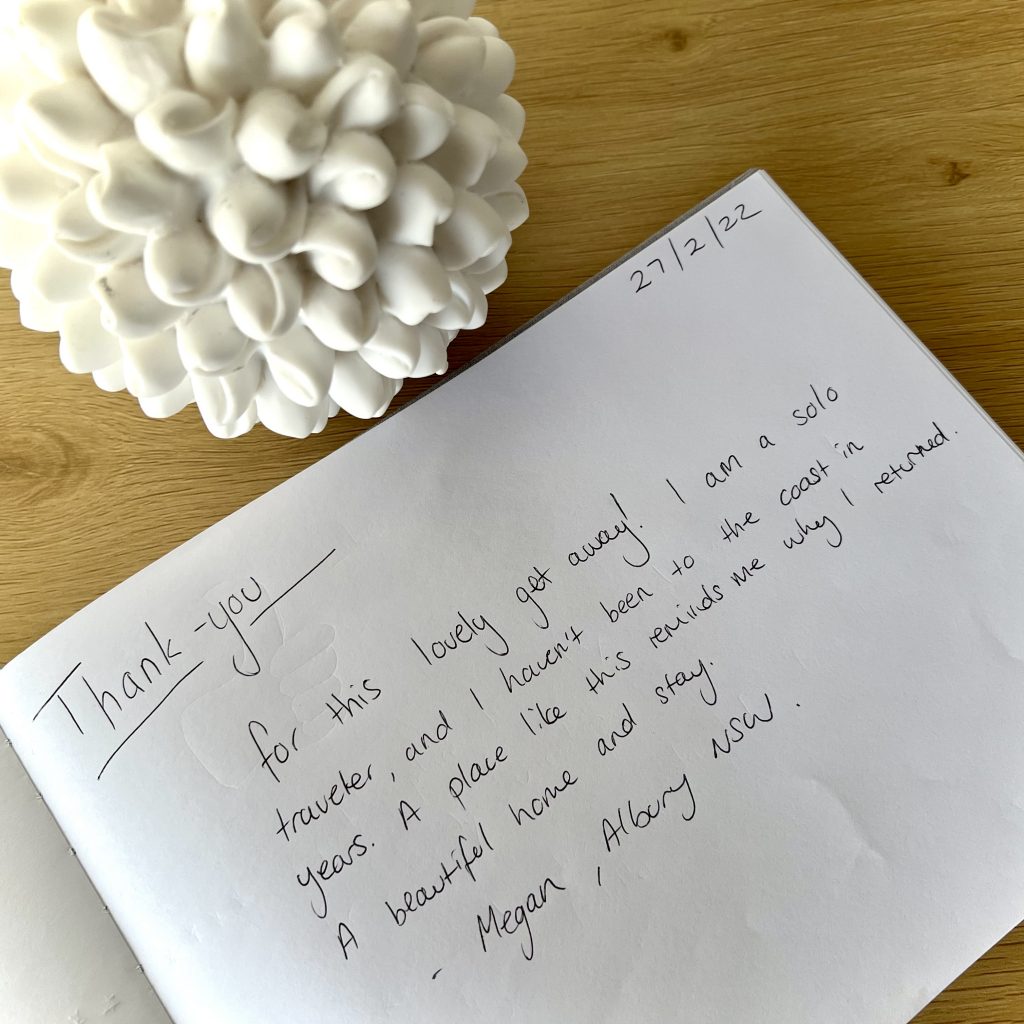 27/2/22
Thank-you
for this lovely get away! I am a solo
traveler, and I haven't been to the coast in
years. A place like this reminds me why I returned.
A beautiful home and stay.
- Megan, Albury NSW.